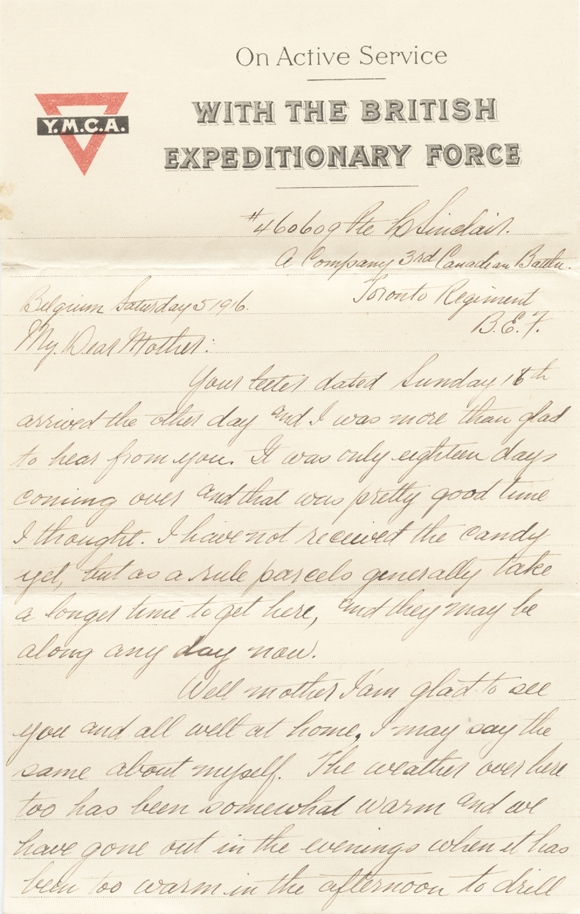 On Active Service
WITH THE BRITISH
EXPEDITIONARY FORCE
Y.M.C.A.
#460609 Pte C Sinclair.
A Company 3rd Canadian Battn.
Toronto Regiment
B.E.F.
Belgium Saturday 5 1916.
My Dear Mother:
Your letter dated Sunday 18th
arrived the other day and I was more than glad
to hear from you. It was only eighteen days
coming over and that was pretty good time
I thought. I have not received the candy
yet, but as a rule parcels generally take
a longer time to get here, and they may be
along any day now.
Well mother I'am glad to see
you and all well at home. I may say the
same about myself. The weather over here
too has been somewhat warm and we
have gone out in the evenings when it has
been too warm in the afternoon to drill